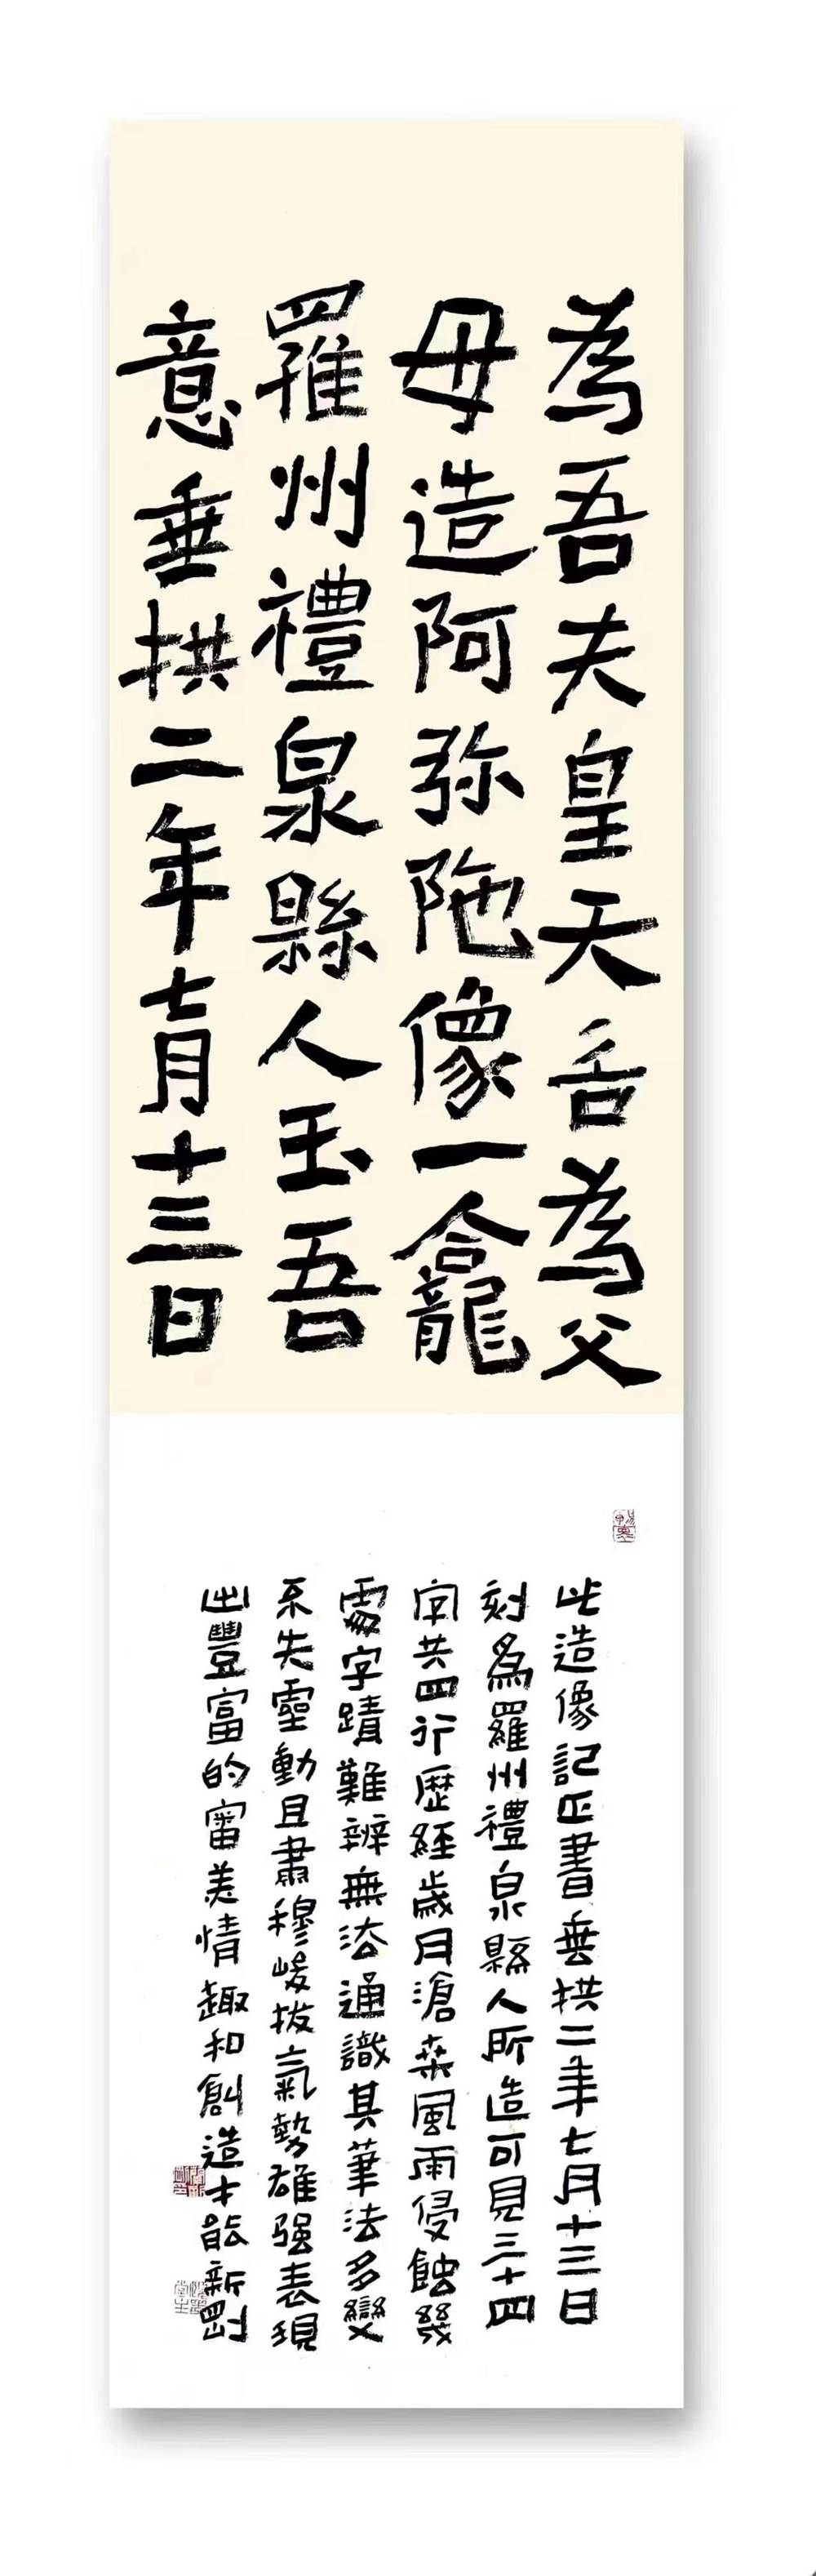 為吾夫皇天舌為父
母造阿弥陁像一合龕
羅州禮泉縣人玉吾
意垂拱二年七月十三日
此造像記正書垂拱二年七月十三日
刻爲羅州禮泉縣人所造可見三十四
字共四行歷經歲月滄桒風雨侵蝕幾
處字蹟難辨無法通識其筆法多變
不失靈動且肅穆峻拔氣勢雄强表現
出豐富的審美情趣和創造才能新剛